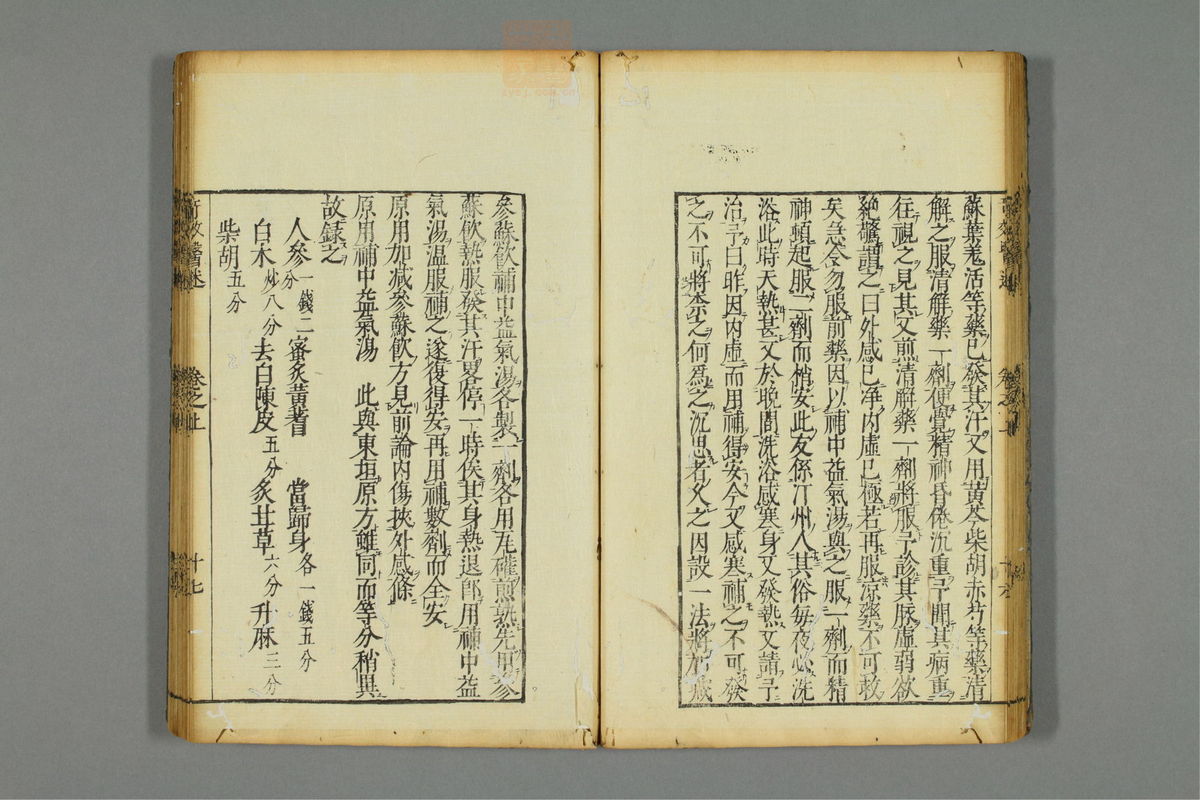 蘇葉羗活等藥已發其汗又用黃芩柴胡赤芍等藥清
解之服清解藥一劑便覺精神昏倦沉重予聞其病重
往視之見其又煎清解藥一劑將服予診其脉虛弱欲
絶驚謂之曰外感已净内虛已極若再服凉藥不可救
矣急令勿服前藥因以補中益氣湯與之服一劑而精
神頓起服二劑而悄安此友係汀州人其俗每夜必洗
浴此時天熱甚又於晚間洗浴感寒身又發熱又請予
治予曰昨因内虛而用補得安今又感寒補之不可發
之不可將柰之何爲之沉思者久之因設一法將加减
參蘇飲補中益氣湯各製一劑各用瓦確煎熟先用參
蘇飲熱服發其汗畧停一時俟其身熱退即用補中益
氣湯温服補之遂復得安再用補數劑而全安
原用加减參蘇飲方見前論内傷挾外感條
原用補中益氣湯 此與東垣原方雖同而等分稍異
故録之
人參一錢二分 蜜炙黃蓍 當歸身各一錢五分
白术炒八分 去白陳皮五分 炙甘草六分 升麻三分
柴胡五分
卷之上
十七